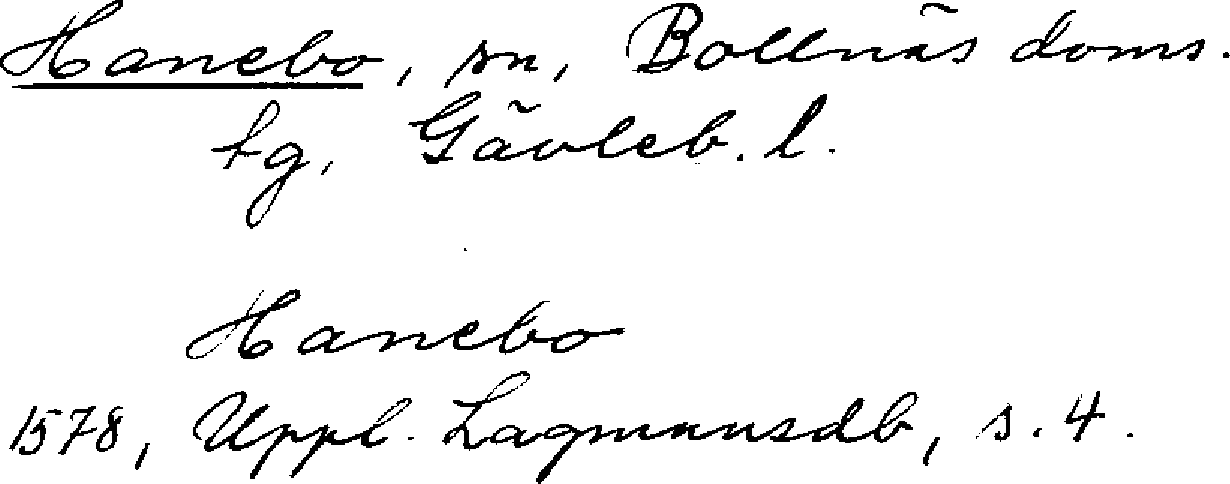 Hanebo, sn, Bollnäs doms.
tg, Gävleb. l.
Hanebo
1578, Uppl. Lagmansdb, s. 4.